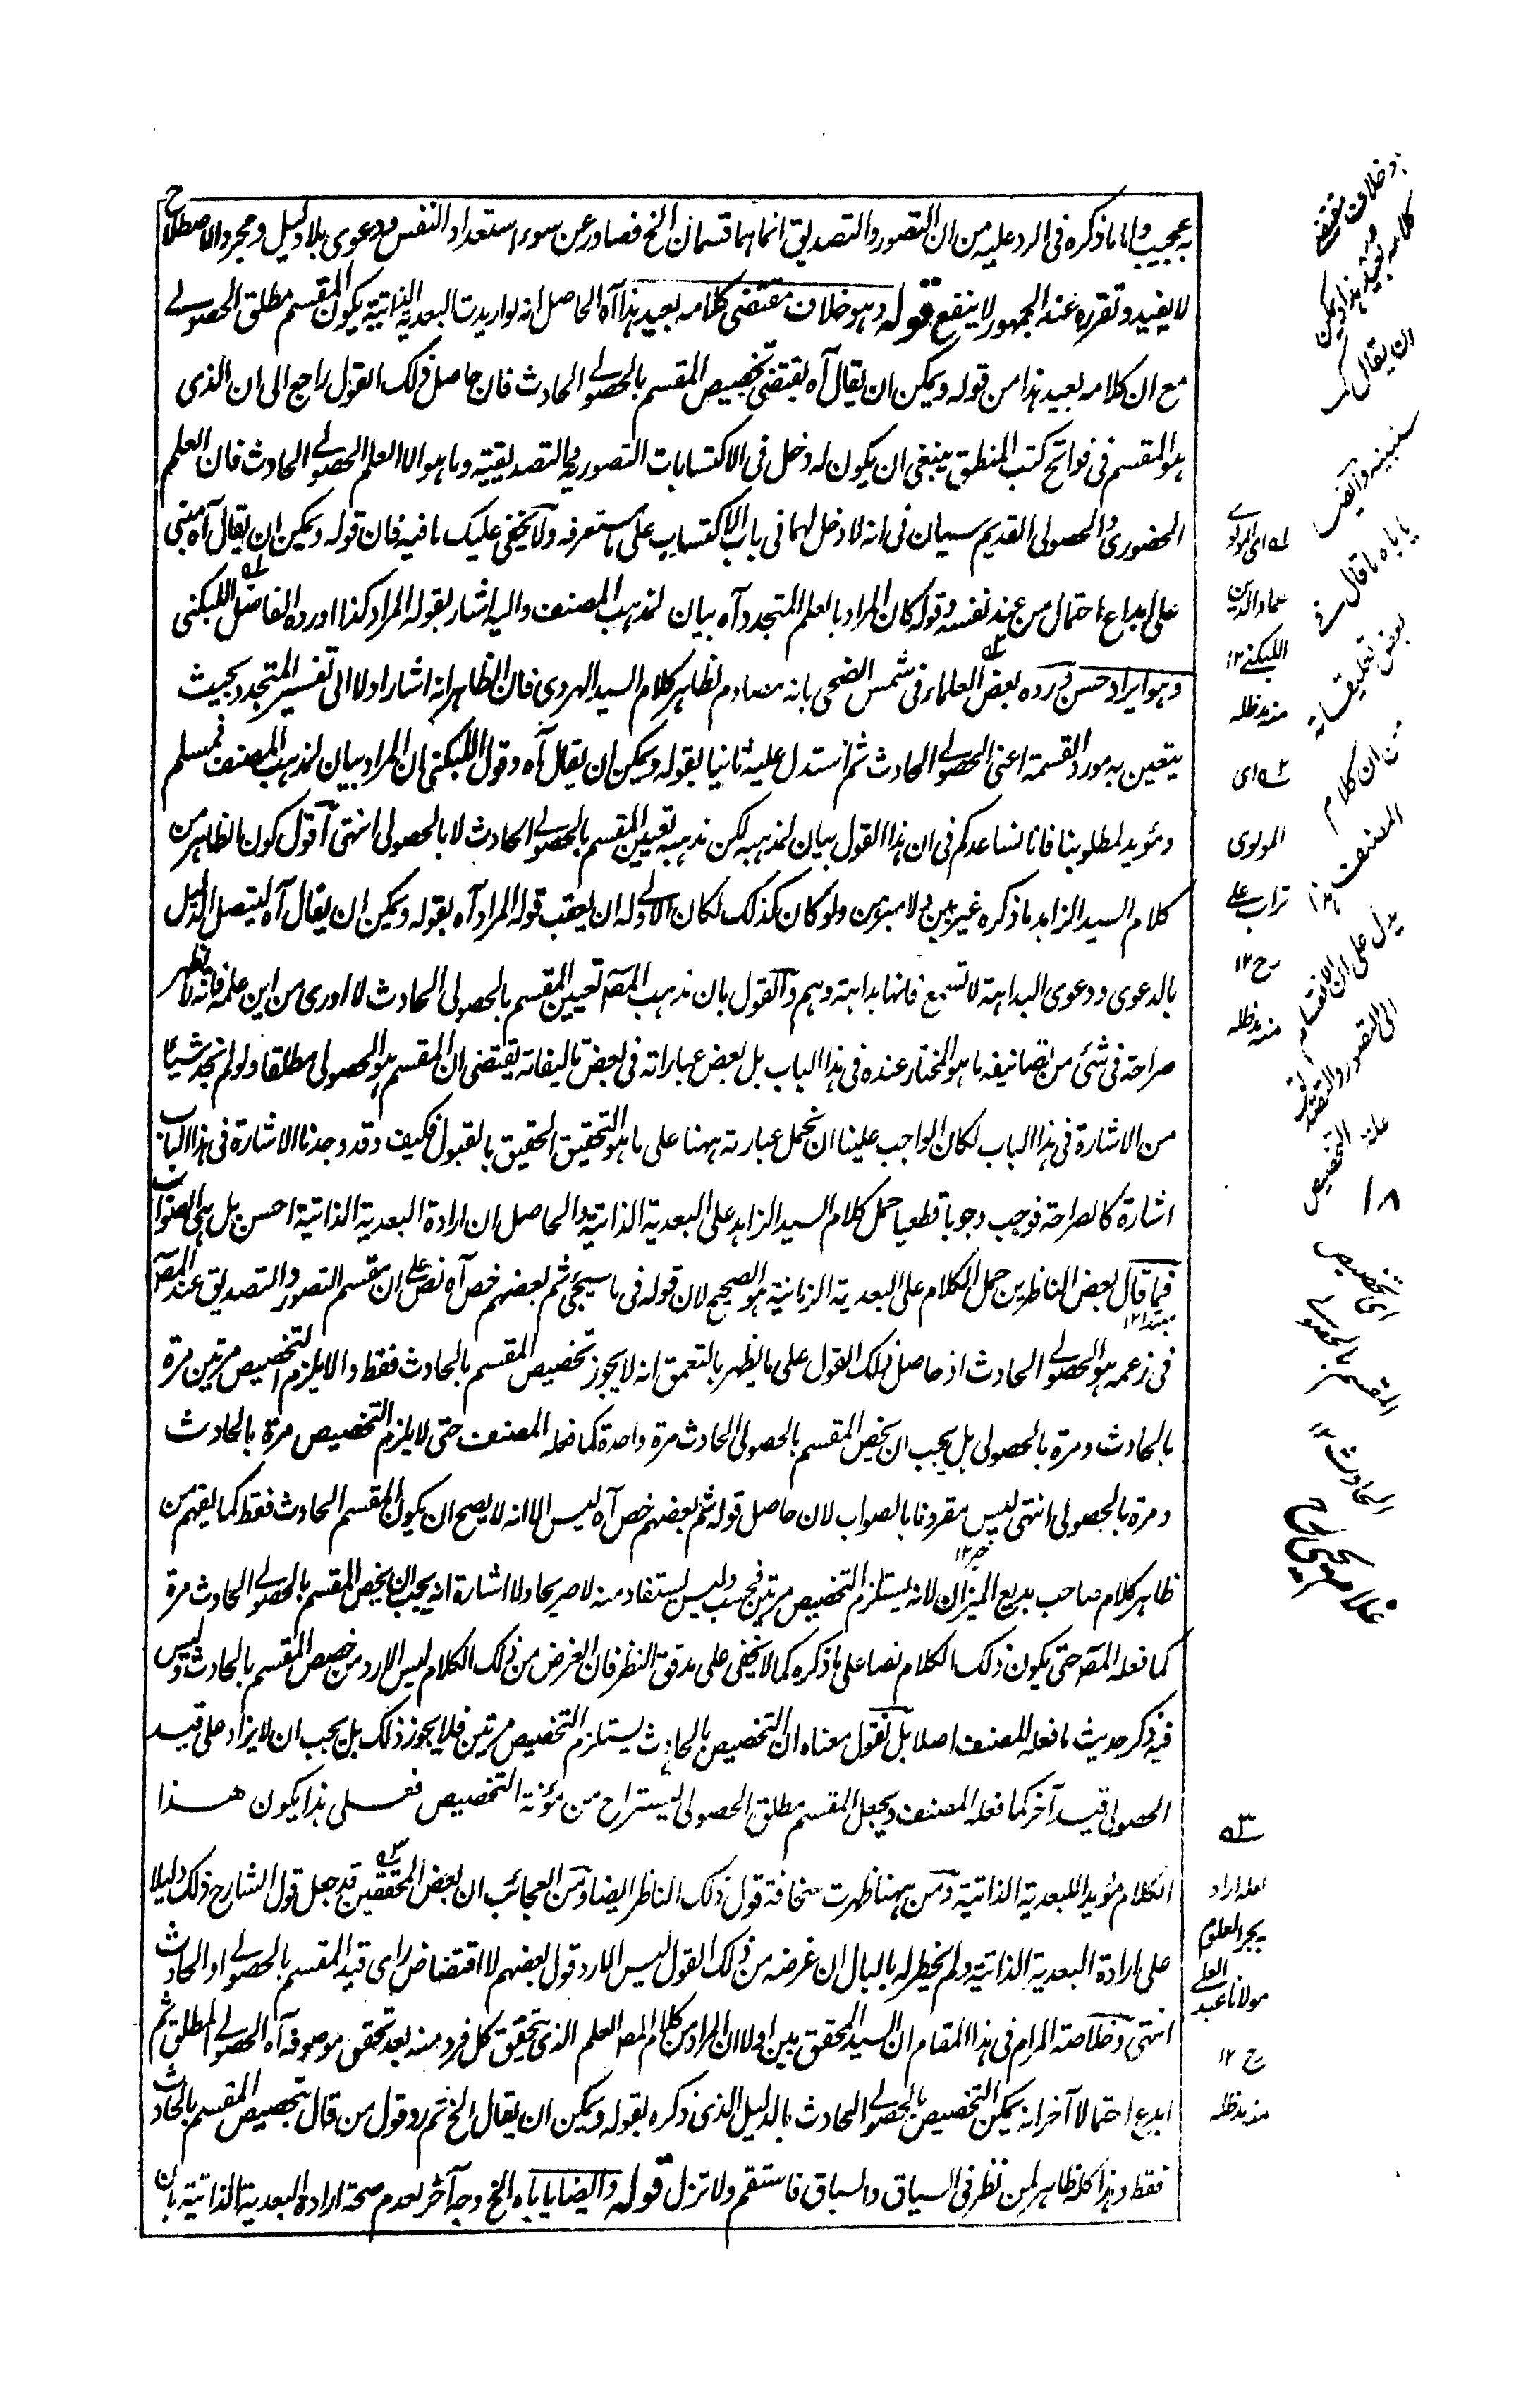 به عجيب واما ما ذكره فى الرد عليه من ان التصور والتصديق انما هما قسمان الخ فصادر عن سوء استعداد النفس ودعوى بلا دليل ومجرد الاصطلاح
لا يفيد وتقرره عند الجمهور لا ينفع قوله وهو خلاف مقتضى كلامه بعيد هذا آه الحاصل انه لو اريدت البعدية الذاتية يكون المقسم مطلق الحصولے
مع ان كلامه بعيد هذا من قوله ويمكن ان يقال آه يقتضى تخصيص المقسم بالحصولے الحادث فان حاصل ذلك القول راجع الى ان الذى
هو المقسم فى فواتح كتب المنطق ينبغى ان يكون له دخل فى الاكتسابات التصورية والتصديقية وما هو الا العلم الحصولے الحادث فان العلم
الحضورى والحصولى القديم سيان فى انه لا دخل لهما فى باب الاكتساب على ما ستعرفه ولا يخفى عليك ما فيه فان قوله ويمكن ان يقال آه مبنى
على ابداع احتمال من عند نفسه وقوله كان المراد بالعلم المتجدد آه بيان لمذهب المصنف واليه اشار بقوله المراد كذا اورده الفاضل اللبكنى
وهو ايراد حسن ورده بعض العلماء فى شمس الضحى بانه مصادم لظاهر كلام السيد الهروى فان الظاهر انه اشار اولا الى تفسير المتجدد بحيث
يتعين به مورد القسمة اعنى الحصولے الحادث ثم استدل عليه ثانيا بقوله ويمكن ان يقال آه وقول اللبكنى ان المراد بيان لمذهب المصنف فمسلم
ومؤيد لمطلوبنا فانا نساعدكم فى ان هذا القول بيان لمذهبه لكن مذهبه تعيين المقسم بالحصولے الحادث لا بالحصولى انتهى اقول كون الظاهر من
كلام السيد الزاهد ما ذكره غير بين ولا مبرهن ولو كان كذلك لكان الاولے له ان يعقب قوله المراد آه بقوله ويمكن ان يقال آه ليتصل الدليل
بالدعوى ودعوى البداهة لا تسمع فانها بداهة وهم والقول بان مذهب المصـ تعيين المقسم بالحصولى الحادث لا ادرى من اين علمه فانه لا يظهر
صراحة فى شئ من تصانيفه ما هو المختار عنده فى هذا الباب بل بعض عباراته فى بعض تاليفاته يقتضى ان المقسم هو الحصولى مطلقا ولو لم نجد شيئا
من الاشارة فى هذا الباب لكان الواجب علينا ان نحمل عبارته ههنا على ما هو التحقيق الحقيق بالقبول فكيف وقد وجدنا الاشارة فى هذا الباب
اشارة كالصراحة فوجب وجوبا قطعيا حمل كلام السيد الزاهد على البعدية الذاتية والحاصل ان ارادة البعدية الذاتية احسن بل هى الصواب
فما قال بعض الناظرين حمل الكلام على البعدية الزمانية هو الصحيح لان قوله فى ما سيجئ ثم بعضهم خص آه نص على ان مقسم التصور والتصديق عند المصـ
مبتدا ١٢
فى زعمه هو الحصولے الحادث اذ حاصل ذلك القول على ما يظهر بالتعمق انه لا يجوز تخصيص المقسم بالحادث فقط والا يلزم التخصيص مرتين مرة
بالحادث ومرة بالحصولى بل يجب ان يخص المقسم بالحصولى الحادث مرة واحدة كما فعله المصنف حتى لا يلزم التخصيص مرة بالحادث
ومرة بالحصولى انتهى ليس مقرونا بالصواب لان حاصل قوله ثم بعضهم خص آه ليس الا انه لا يصح ان يكون المقسم الحادث فقط كما يفهم من
خبر ١٢
ظاهر كلام صاحب بديع الميزان لانه يستلزم التخصيص مرتين فحسب وليس يستفاد منه لا صريحا ولا اشارة انه يجب ان يخص المقسم بالحصولے الحادث مرة
كما فعله المصـ حتى يكون ذلك الكلام نصا على ما ذكره كما لا يخفى على مدقق النظر فان الغرض من ذلك الكلام ليس الا رد من خصص المقسم بالحادث وليس
فيه ذكر حديث ما فعله المصنف اصلا بل نقول معناه ان التخصيص بالحادث يستلزم التخصيص مرتين فلا يجوز ذلك بل يجب ان لا يزاد على قيد
الحصولى قيد آخر كما فعله المصنف ويجعل المقسم مطلق الحصولى ليستراح من مؤنة التخصيص فعلى هذا يكون هذا
الكلام مؤيدا للبعدية الذاتية ومن ههنا ظهرت سخافة قول ذلك الناظر ايضا ومن العجائب ان بعض المحققين قد جعل قول الشارح ذلك دليلا
على ارادة البعدية الذاتية ولم يخطر له بالبال ان غرضه من ذلك القول ليس الا رد قول بعضهم لا اقتضاض راى قيد المقسم بالحصولے او الحادث
انتهى وخلاصة المرام فى هذا المقام ان السيد المحقق بين اولا ان المراد من كلام المصـ العلم الذى يتحقق كل فرد منه بعد تحقق موصوفه آه الحصولے المطلق ثم
ابدع احتمالا آخر انه يمكن التخصيص بالحصولے الحادث بالدليل الذى ذكره بقوله ويمكن ان يقال الخ ثم رد قول من قال بتخصيص المقسم بالحادث
فقط وهذا كله ظاهر لمن نظر فى السياق والسباق فاستقم ولا تزل قوله وايضا ياباه الخ وجه آخر لعدم صحة ارادة البعدية الذاتية بان
وخلاف مقتضى
كلامه بعيد هذا ويمكن
ان يقال
سنبينه وايضا
ياباه ما قال فى
بعض تعليقاته
من ان كلام
المصنف هذا
يدل على ان الانقسام
الى التصور والتصديق
علة التخصيص
١٨
اى تخصيص
المقسم بالحصولے
الحادث
غلام يحيى
له اى المولوے
عماد الدين
اللبكنے ١٢
منه مد ظله
٢ه اى
المولوى
تراب على
رح ١٢
منه مد ظله
٣ه
لعله اراد
بحر العلوم
مولانا عبد العلے
رح ١٢
منه مد ظله